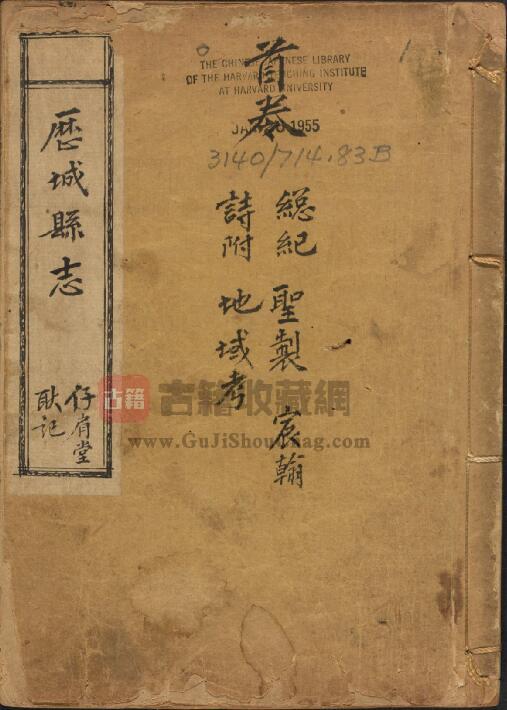 首卷
THE CHINESE-JAPANESE LIBRARY
OF THE HARVARD-YENCHING INSTITUTE
AT HARVARD UNIVERSITY
1955
3140/714.83B
總紀 聖製 宸翰
詩附 地域考
歷城縣志
仔肩堂
耿記
古籍 古籍收藏網
www.GuJiShouCang.com